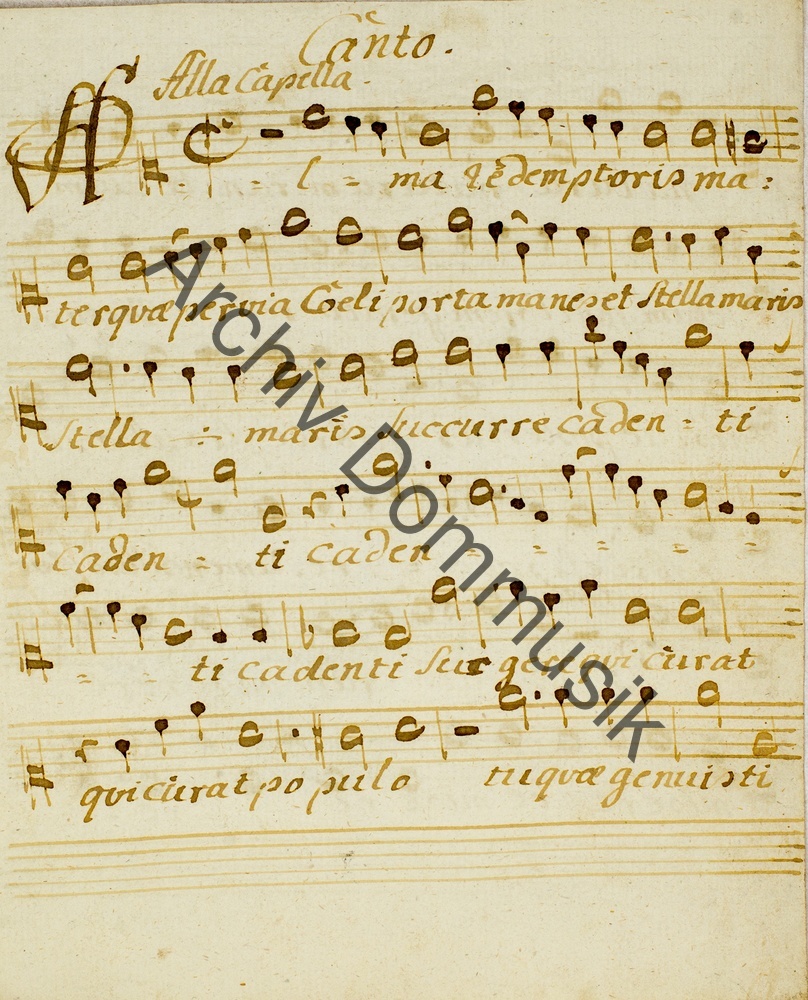 Canto.
Alla Capella.
A = = l = ma Redemptoris ma =
ter quæ pervia Cœli porta manes et Stella maris
Stella ÷ maris succurre caden = ti
caden = ti caden = = = = =
= = ti cadenti Surgere qui curat
qui curat populo tu quæ genuisti
Archiv Dommusik